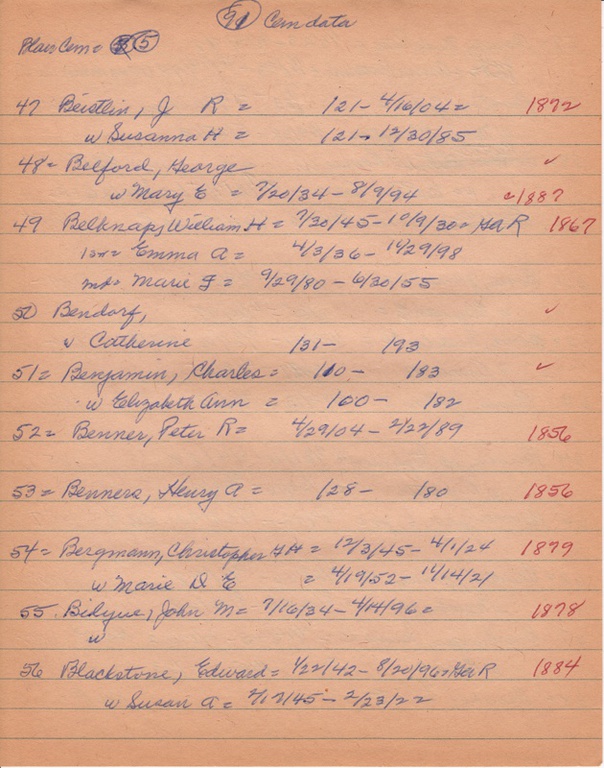 91 Cem data
Blair Cem = 5
47 Beistlin, J R = 121 - 4/16/04 = 1872
w Susanna H = 121 - 12/30/85
48 = Belford, George ✓
w Mary E = 7/20/34 - 8/9/94 1887
49 Belknap, William H = 7/30/45 - 10/9/30 = GAR 1867
1st = Emma A = 4/3/36 - 11/29/98
Marie F = 9/29/80 - 6/30/55
50 Bendorf, ✓
w Catherine 131 - 193
51 = Benjamin, Charles = 110 - 183 ✓
w Elizabeth Ann = 100 - 182
52 = Benner, Peter R = 4/29/04 - 2/22/89 1856
53 = Benners, Henry A = 128 - 180 1856
54 = Bergmann, Christopher H = 12/3/45 - 4/1/24 1879
w Marie D E = 4/19/52 - 11/14/21
55. John M = 7/16/34 - 4/14/96 = 1878
w
56 Blackstone, Edward = 1/22/42 - 8/20/96 = GAR 1884
w Susan A = 2/17/45 - 2/23/22